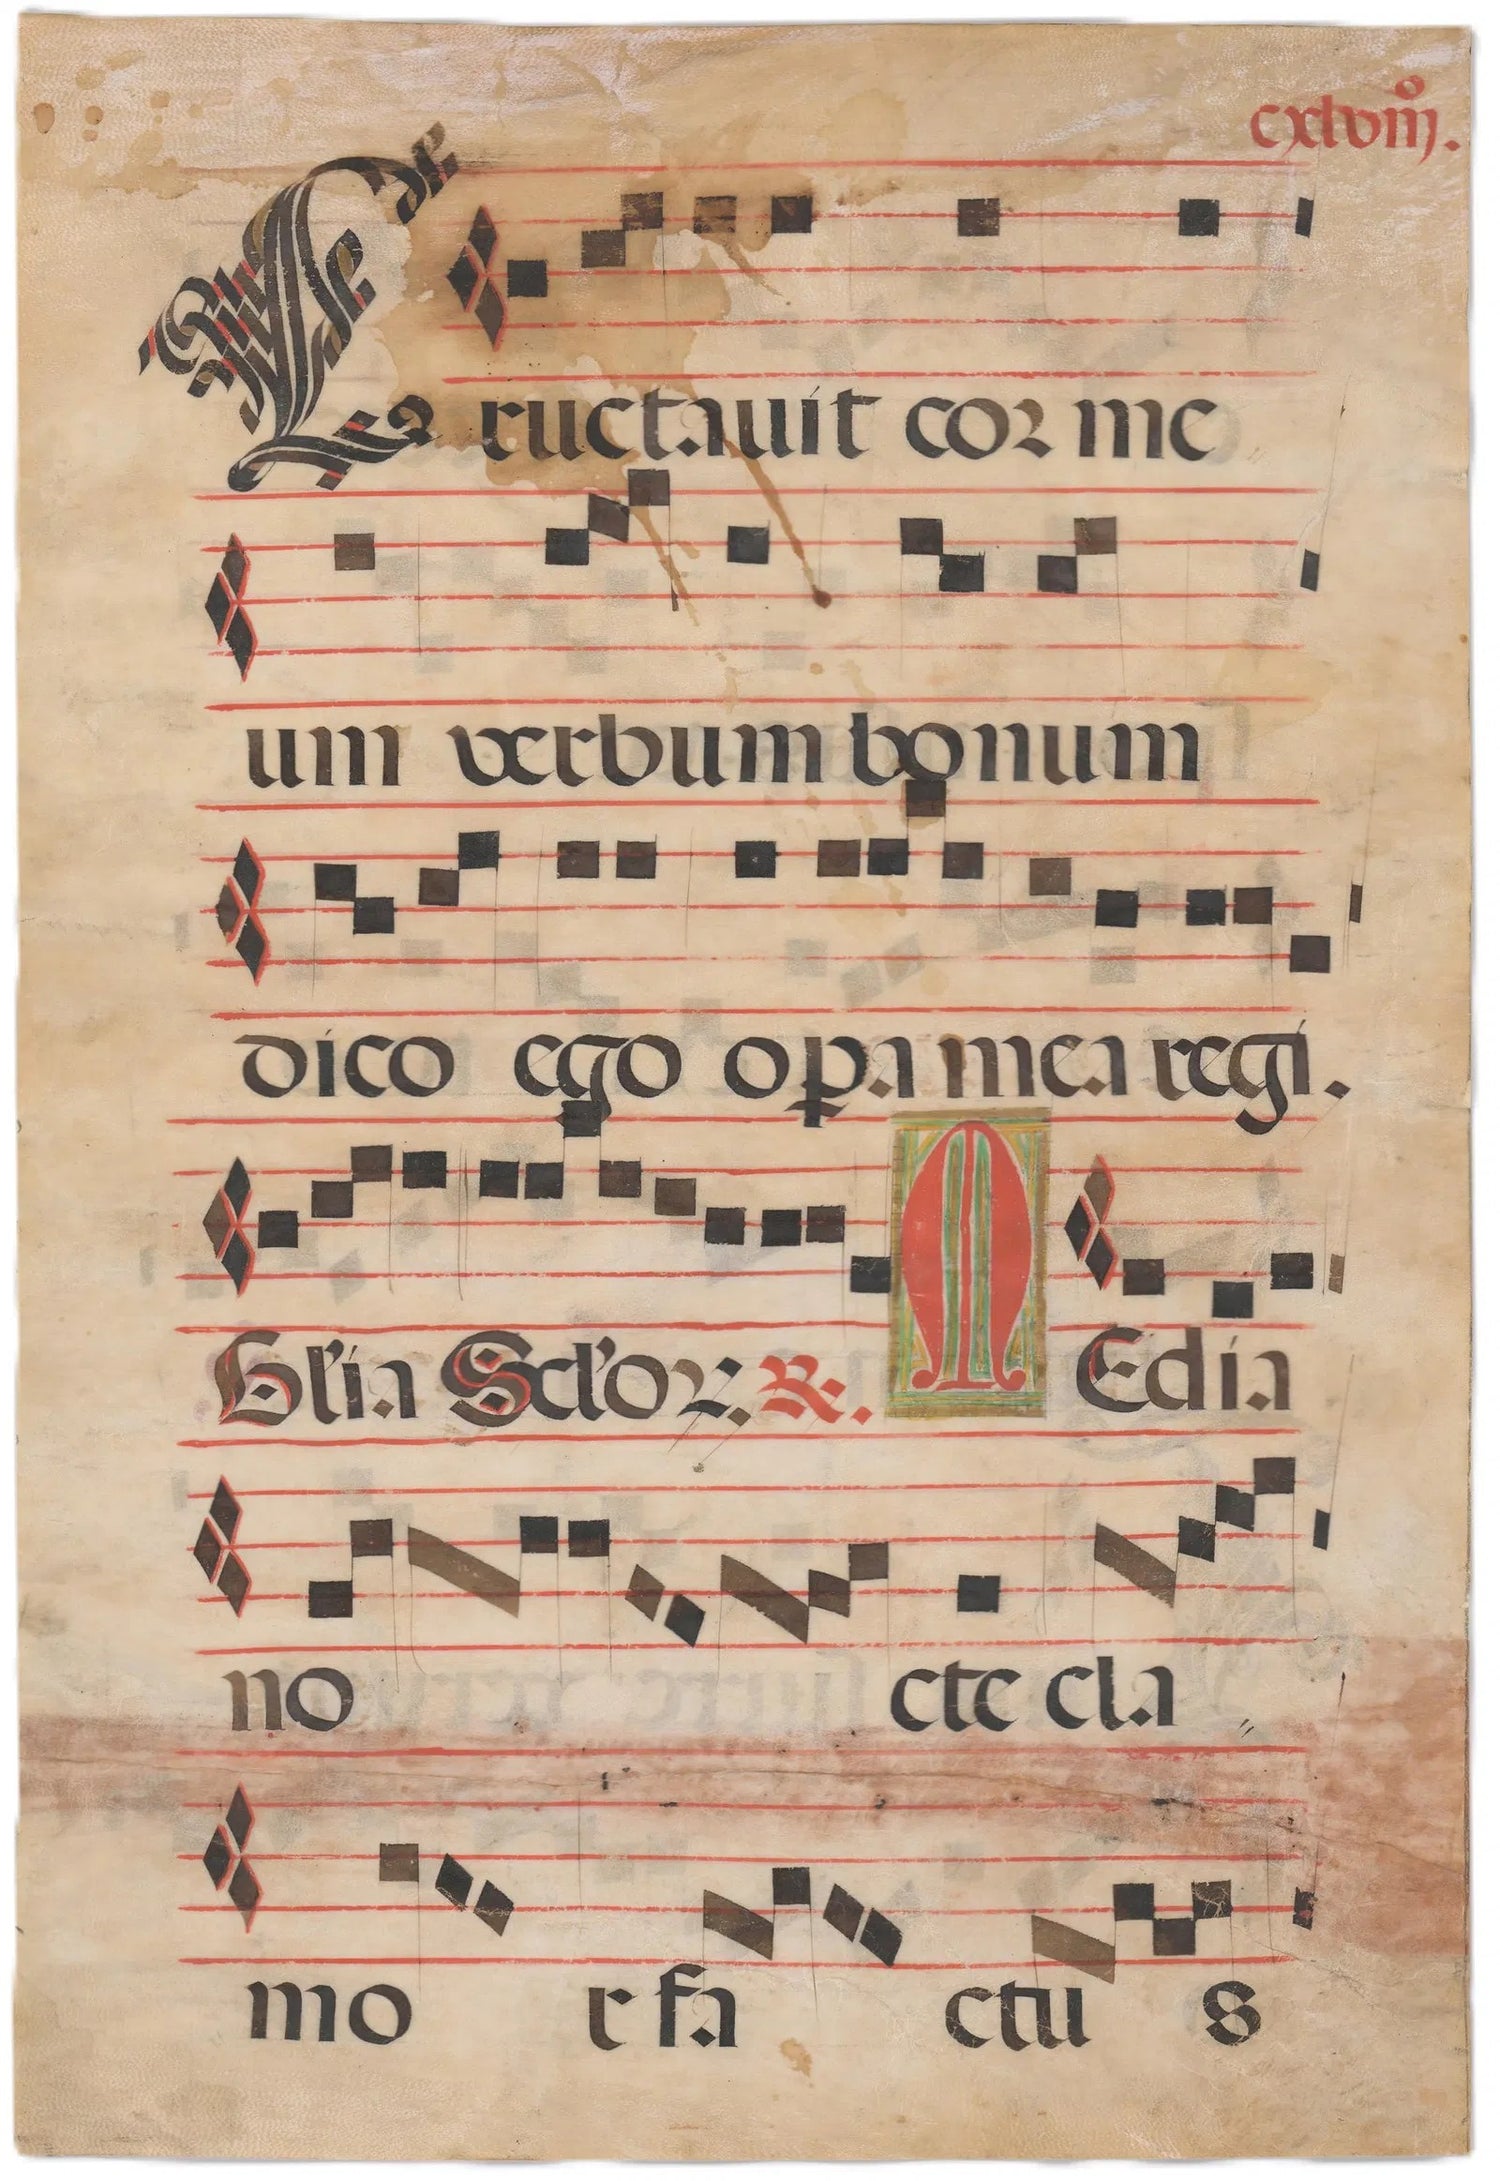 cxlviijº.
Eructauit cor me
um verbum bonum
dico ego opa mea regi.
Glia Sclo2. R. MEdia
no cte cla
mo r fa ctu s